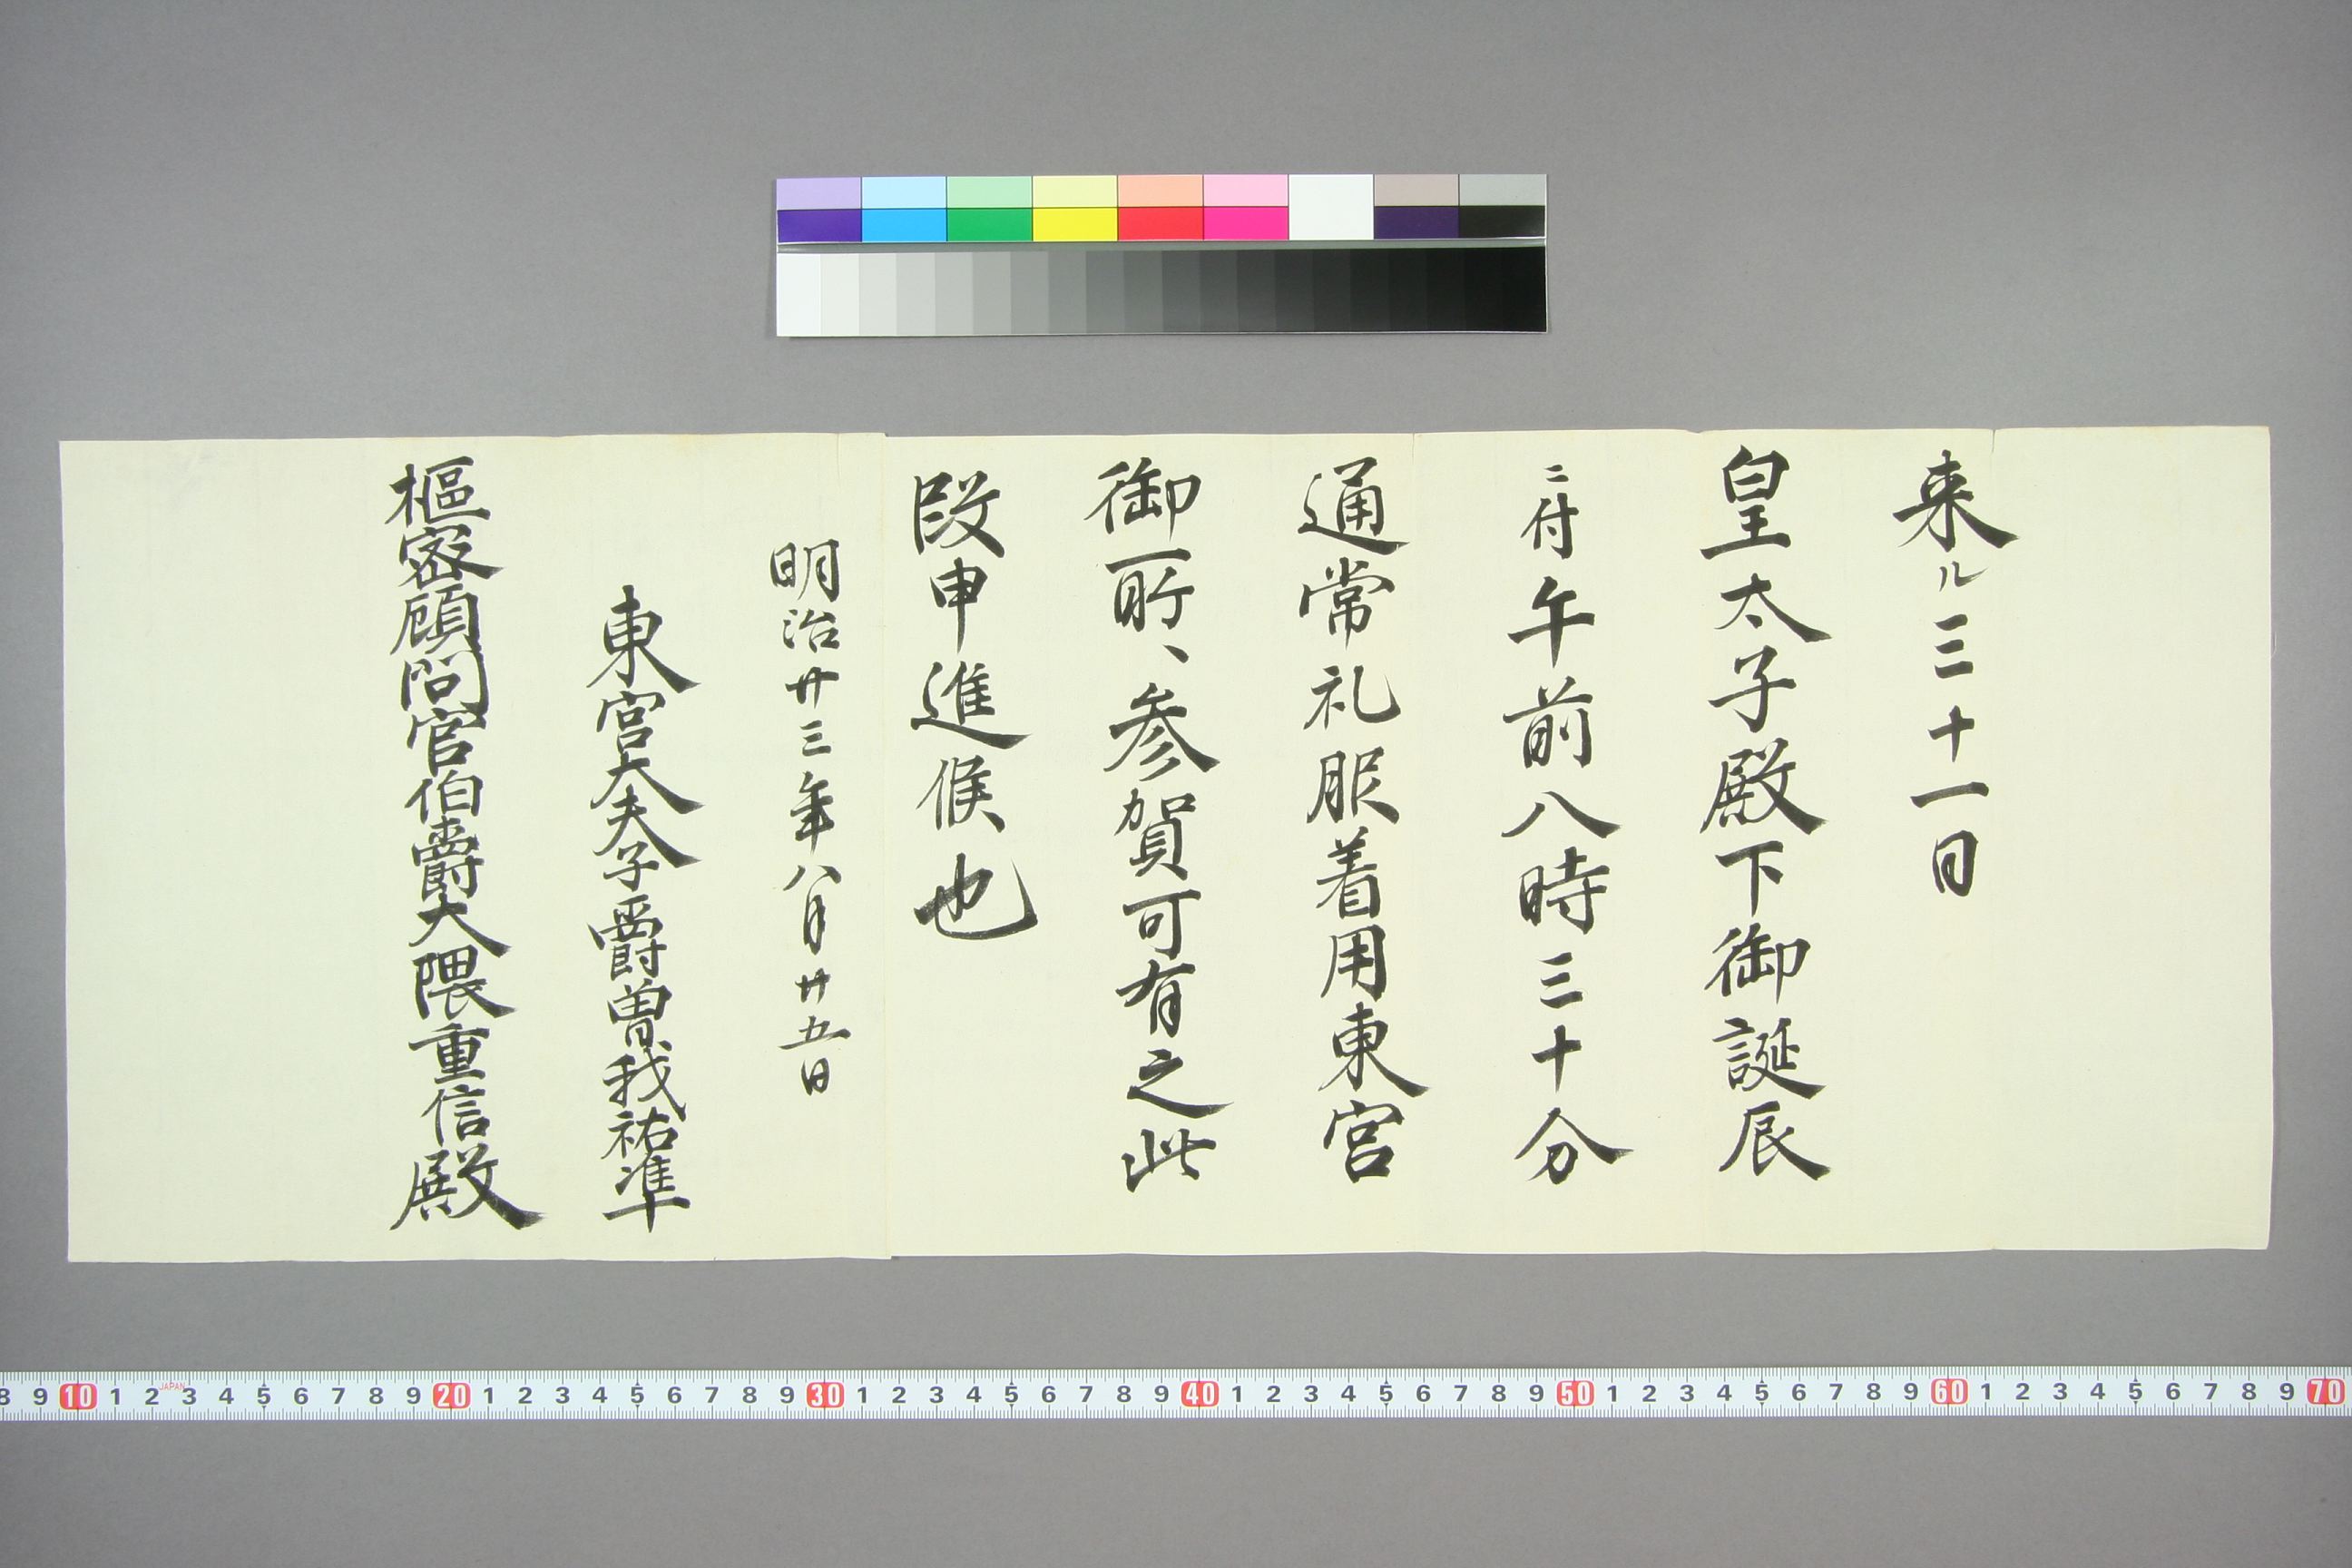 来ル三十一日
皇太子殿下御誕辰
ニ付午前八時三十分
通常礼服着用東宮
御所ヘ参賀可有之此
段申進候也
明治廿三年八月廿五日
東宮大夫子爵曽我祐準
枢密顧問官伯爵大隈重信殿
8 9 10 1 2 3 4 5 6 7 8 9 20 1 2 3 4 5 6 7 8 9 30 1 2 3 4 5 6 7 8 9 40 1 2 3 4 5 6 7 8 9 50 1 2 3 4 5 6 7 8 9 60 1 2 3 4 5 6 7 8 9 70
JAPAN